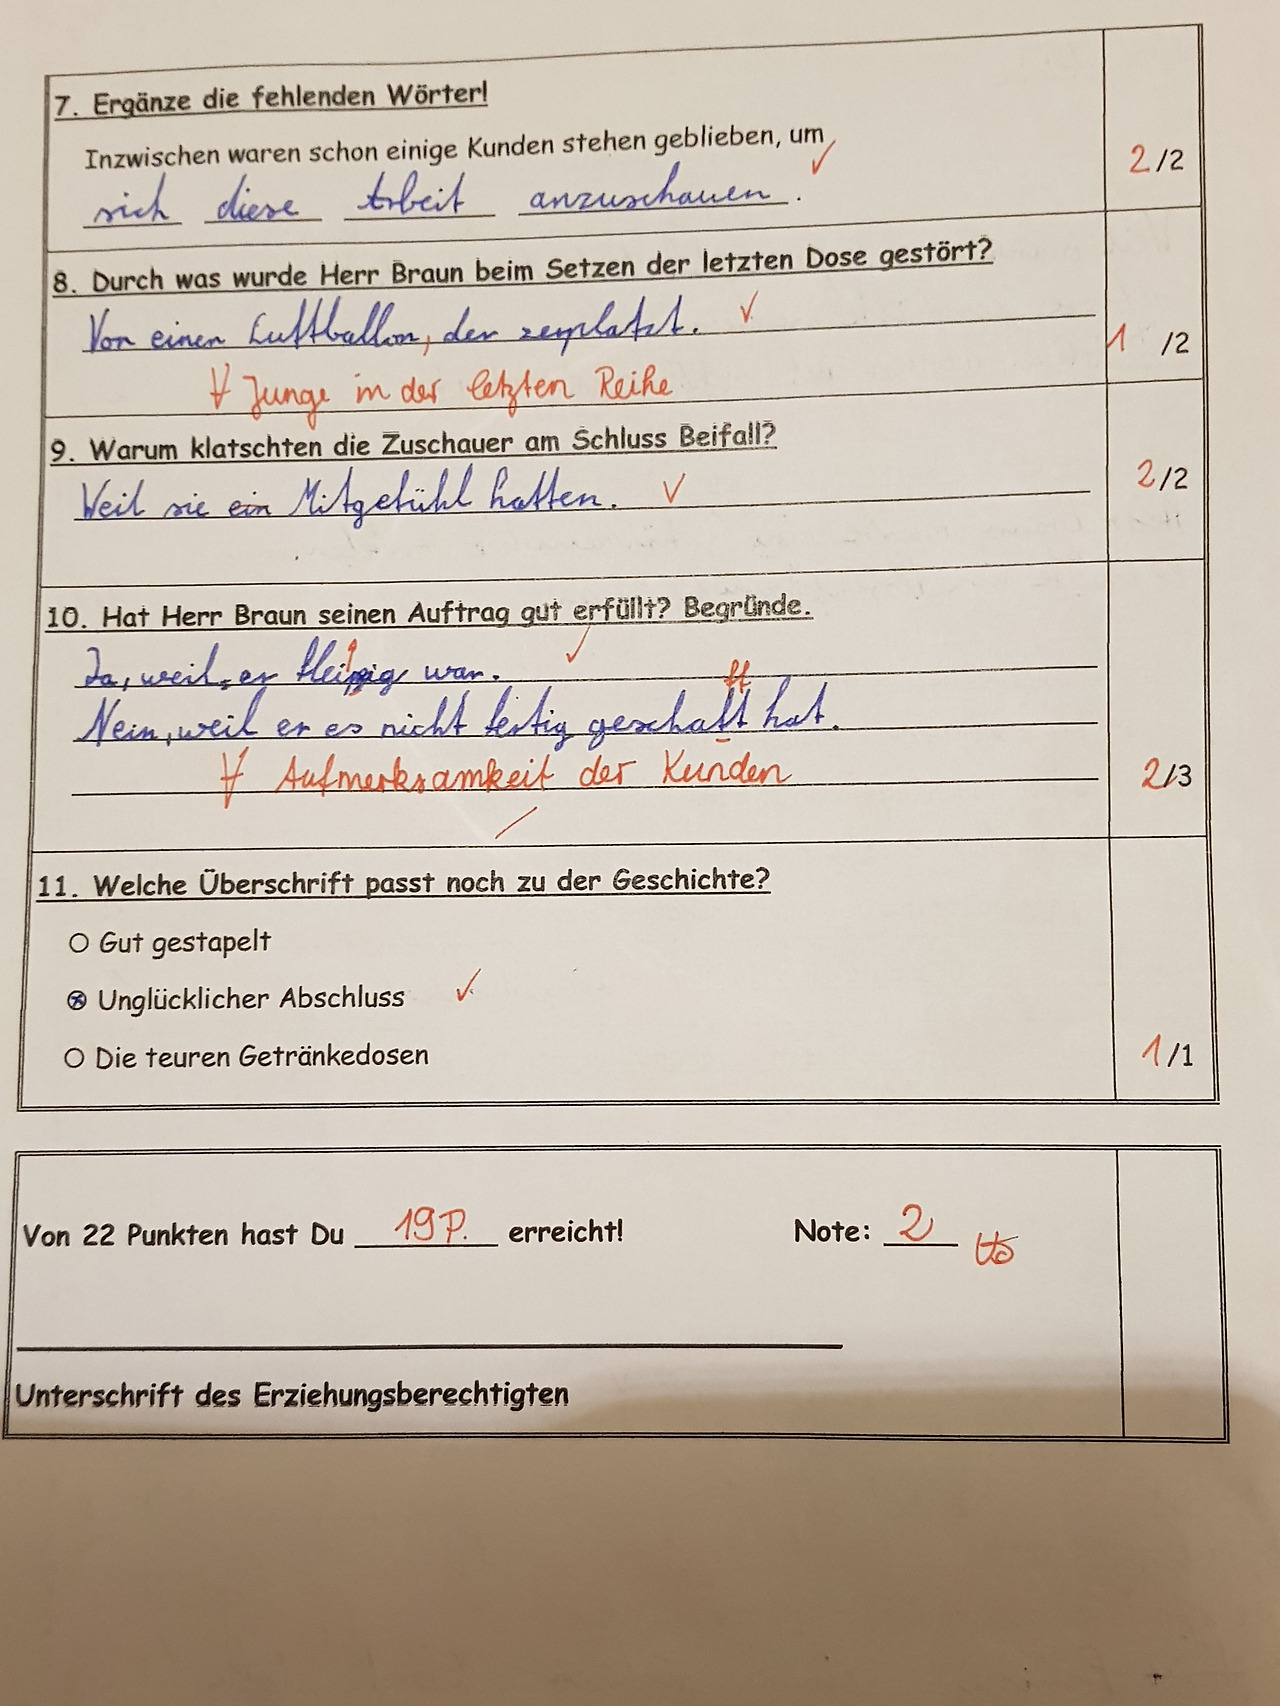 7. Ergänze die fehlenden Wörter!
Inzwischen waren schon einige Kunden stehen geblieben, um
sich diese Arbeit anzuschauen.
2/2
8. Durch was wurde Herr Braun beim Setzen der letzten Dose gestört?
Von einen Luftballon, der zerplatzt.
1 /2
Junge in der letzten Reihe
9. Warum klatschten die Zuschauer am Schluss Beifall?
Weil sie ein Mitgefühl hatten.
2/2
10. Hat Herr Braun seinen Auftrag gut erfüllt? Begründe.
Ja, weil er fleißig war.
ff
Nein, weil er es nicht fertig geschaft hat.
Aufmerksamkeit der Kunden
2/3
11. Welche Überschrift passt noch zu der Geschichte?
Gut gestapelt
Unglücklicher Abschluss
Die teuren Getränkedosen
1/1
Von 22 Punkten hast Du 19P. erreicht! Note: 2
Unterschrift des Erziehungsberechtigten